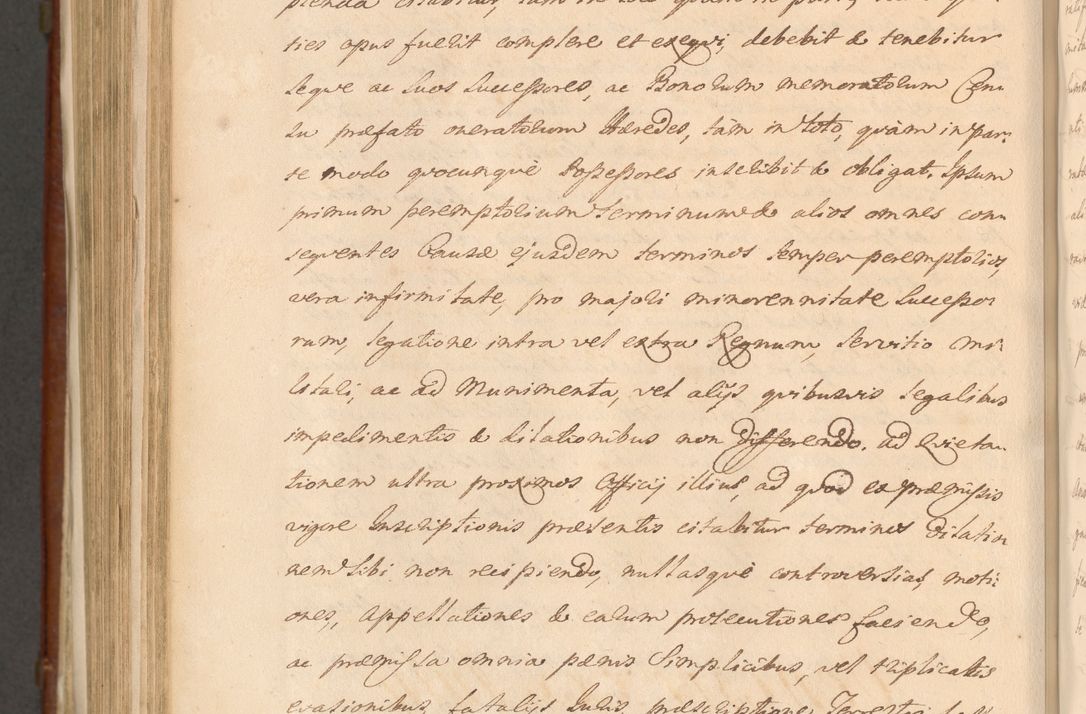 ties opus fuerit complere et exequi, debebit & tenebitur
seque ac suos Successores, ac Bonorum memoratorum Cen:
su præfato oneratorum Hæredes, tàm in toto, quàm in par:
te modo quocunquè Possessores inscribit & obligat. Ipsum
primum peremptorium terminum & alios omnes con:
sequentes Causæ ejusdem terminos semper peremptorios,
vera infirmitate, pro majori minorennitate Successo:
rum, legatione intra vel extra Regnum, servitio mi:
litari, ac ad Munimenta, vel alijs quibusvis legalibus
impedimentis & dilationibus non differendo. ad Quieta:
tionem ultra proximos Officij illius, ad quod ex præmissis
vigore Inscriptionis præsentis citabitur terminos dilatio:
nem sibi non recipiendo, nullasquè controversias, moti:
ones, appellationes & earum prosecutiones faciendo,
ac præmissa omnia pænis Simplicibus, vel triplicatis
evasionibus, fatalijs Juris præscriptione Terrestri